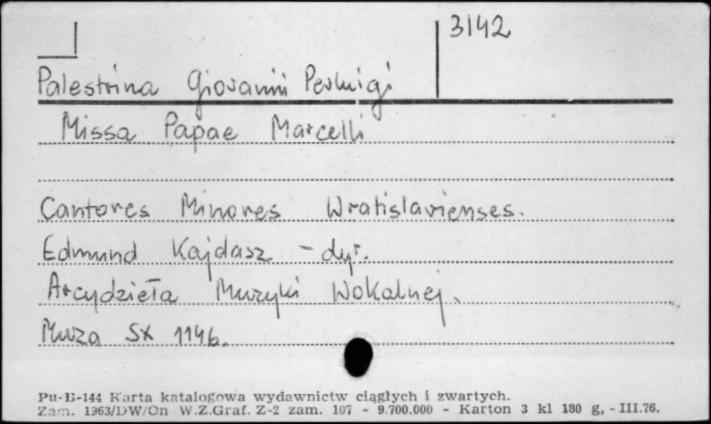 3142
Palestrina Giovanni Perluigi
Missa Papae Marcelli
Cantores Minores Wratislavienses.
Edmund Kajdasz - dyr.
Arcydzieła Muzyki Wokalnej.
Muza SX 1146.
Pu-B-144 Karta katalogowa wydawnictw ciągłych i zwartych.
Zam. 1363/DW/On W.Z.Graf. Z-2 zam. 107 - 9.700.000 - Karton 3 kl 180 g, - III.76.